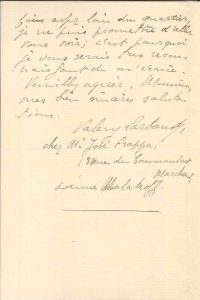 suis assez loin du quartier,
je ne puis promettre d'aller
vous voir; c'est pourquoi
je vous serais très recon-
naissant de m'écrire.
Veuillez agréer, Monsieur,
mes bien sincères saluta-
tions.
Valery Larbaud
chez Mr José Frappa,
rue du Commandant
Marchand
avenue Malakoff.